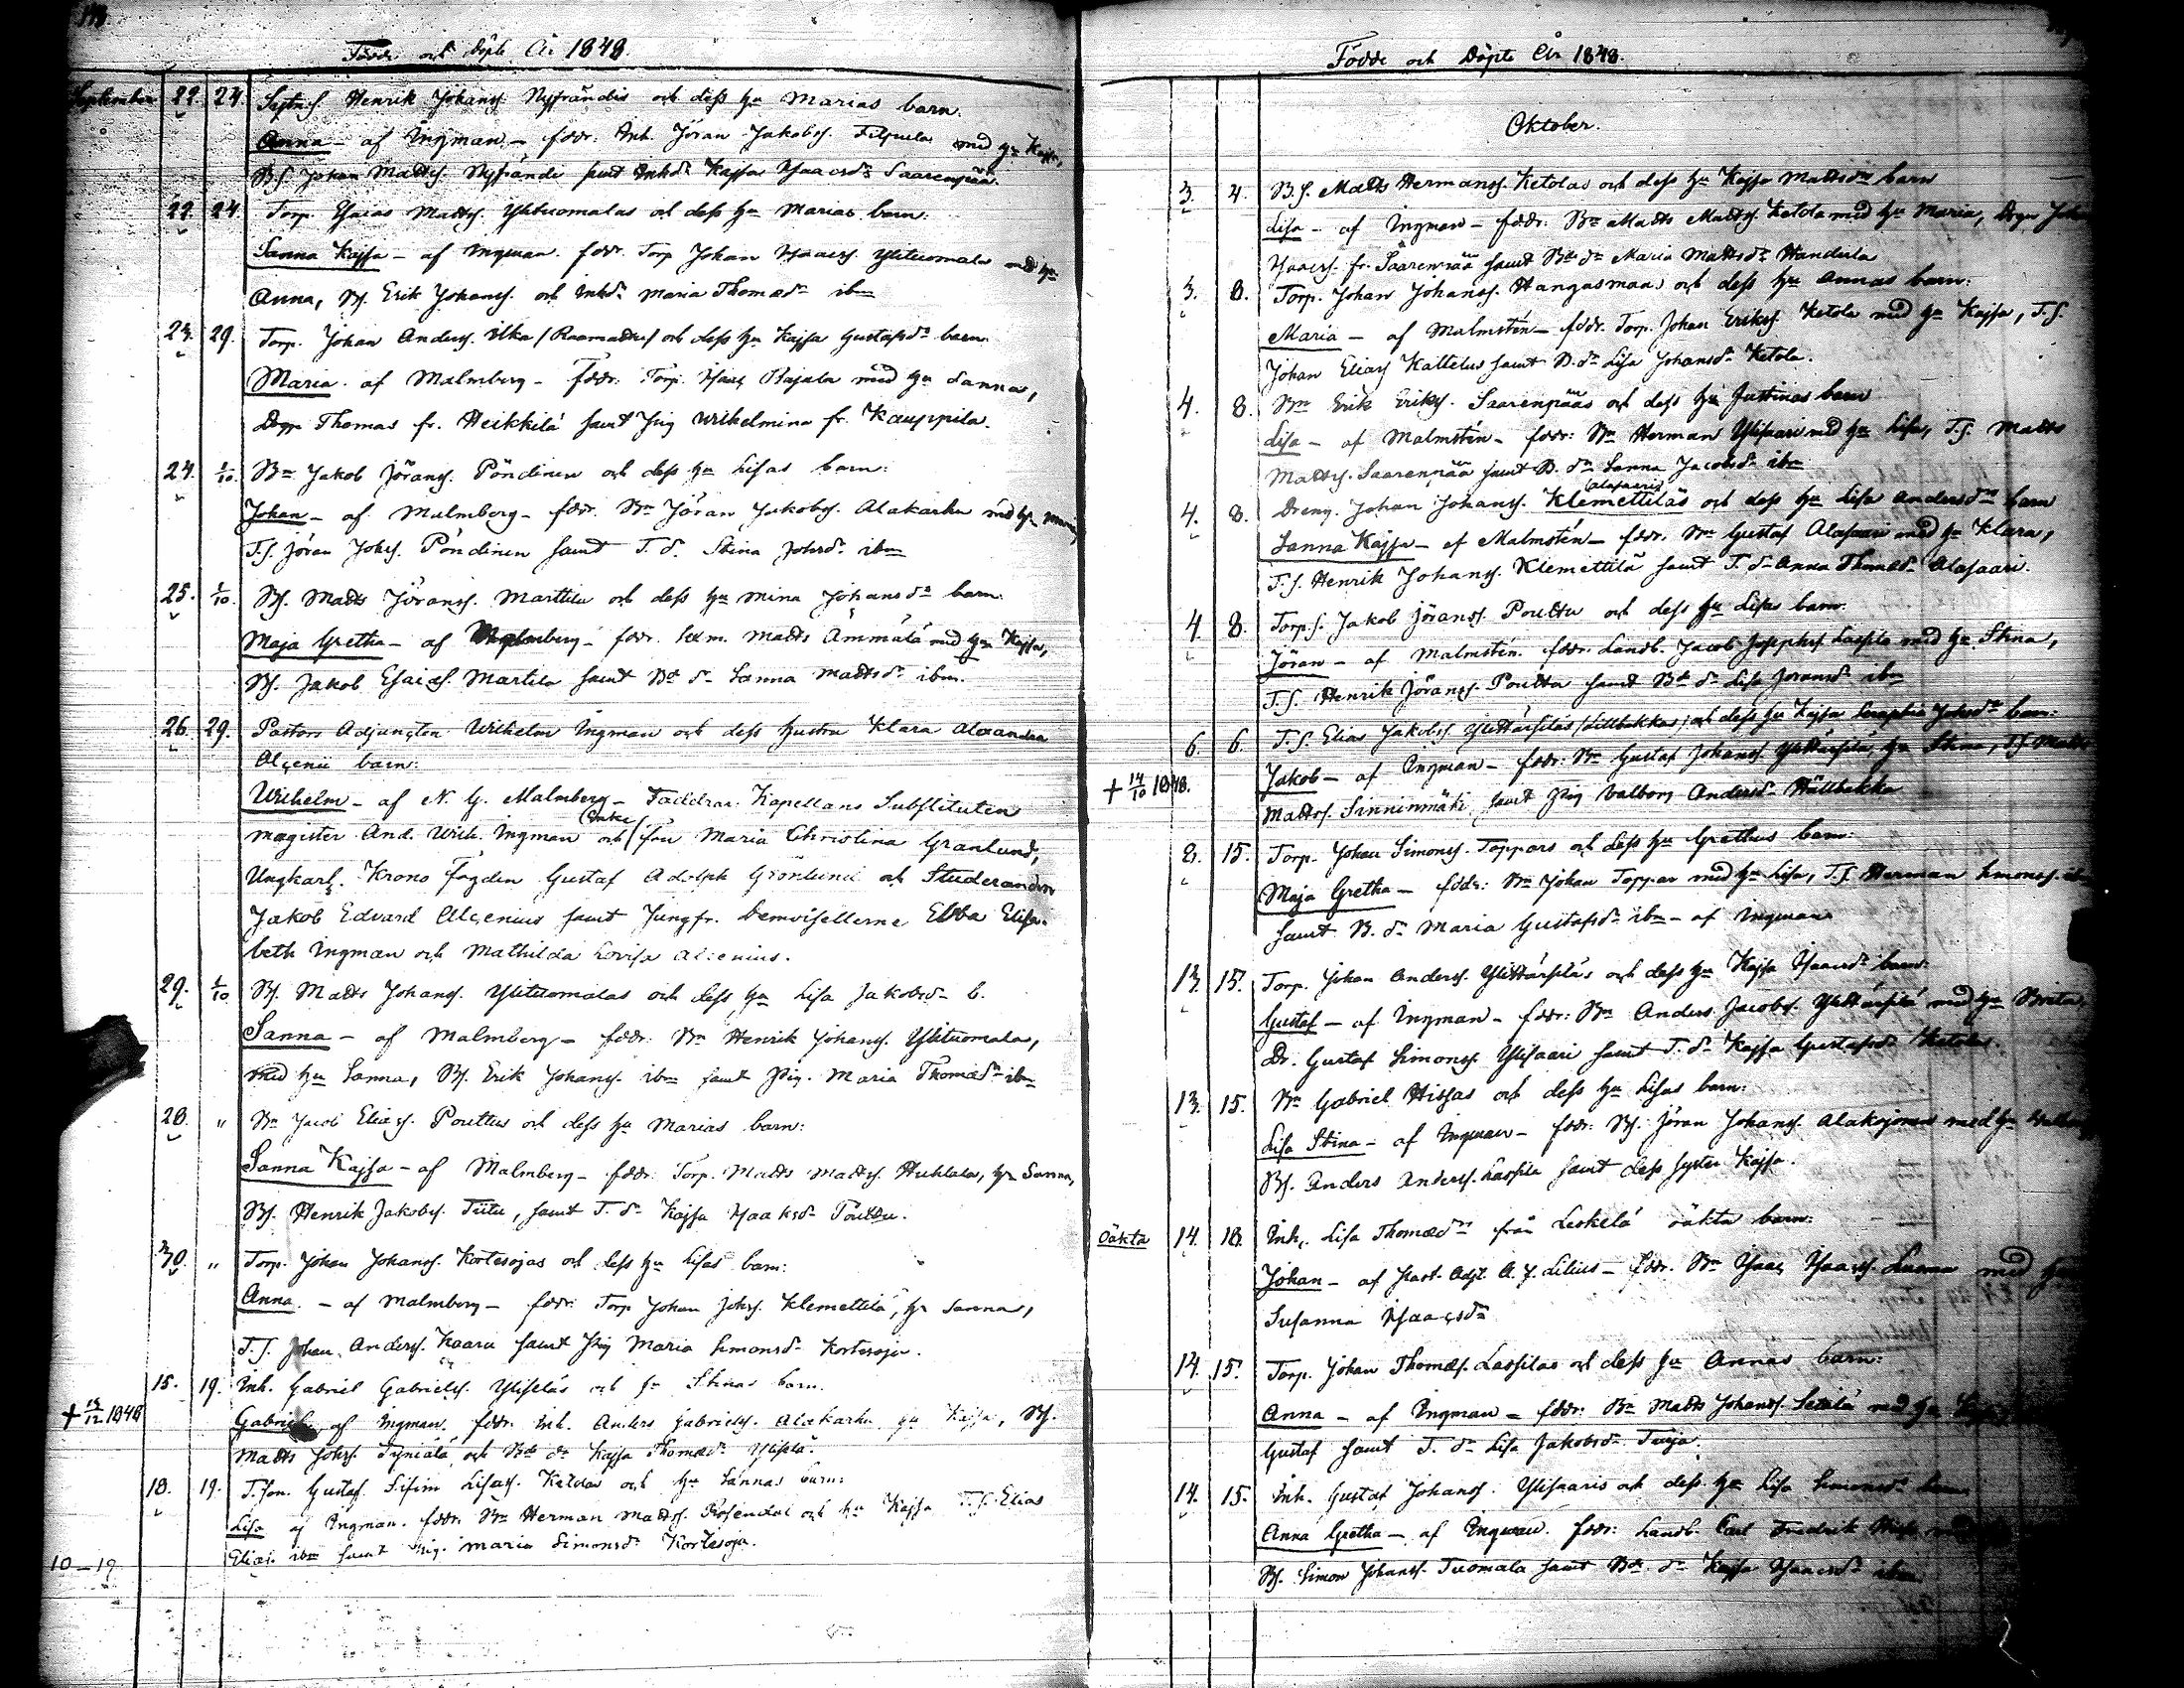 Födde och Döpte År 1848.
September 22. 24. Henrik Johanss. Nyfrändis och dess hu Marias barn.
Anna - af Ingman - fddr. Inh. Jöran Jakobss. Filpula med hu Kajsa,
B.S. Johan Mattss. Nyfrändi samt Inhdr Kajsa Isaacsdr Saarenpää.
22. 24. Torp. Esaias Mattss. Ylituomalas och dess hu Marias barn:
Sanna Kajsa - af Ingman. fddr. Torp Johan Isaacss. Ylituomala med hu
Anna, BS. Erik Johanss. och Inhdr Maria Thomædr ibm
23. 29. Torp. Johan Anderss. Ilka och dess hu Kajsa Gustafsdr barn
Maria - af Malmberg - Fddr: Torp. Isaac Rajala med hu Sanna,
Drgn Thomas fr. Heikkilä samt Pig Wilhelmina fr. Kauppila.
24. 1/10. Bn Jakob Jöranss. Pöndinen och dess hu Lisas barn:
Johan - af Malmberg - fddr. Bn Jöran Jakobss. Alakarhu med hu
T.S. Jöran Johss. Pöndinen samt T.dr Stina Johsdr ibm
25. 1/10. BS. Matts Jöranss. Marttila och dess hu Mina Johansdr barn:
Maja Gretha - af - fddr. Sexm. Matts Ämmälä med hu Kajsa,
BS. Jakob Esaiæs. Martila samt Bdr Sanna Mattsdr ibm.
26. 29. Pastors Adjungten Wilhelm Ingman och dess hustru Klara Alexandra
Alcenii barn:
Wilhelm - af N. G. Malmberg - Faddrar: Kapellans Substituten
magister And. Wilh. Ingman och (Enke) fru Maria Christina Granlund,
Ungkarl. Krono Fogden Gustaf Adolph Grönlund och Studeranden
Jakob Edvard Alcenius samt Jungfr. Demoisellerne Ebba Elisa-
beth Ingman och Mathilda Lovisa Alcenius.
29. 1/10 BS. Matts Johanss. Ylituomalas och dess hu Lisa Jakobsdr b.
Sanna - af Malmberg - fddr: Bn Henrik Johanss. Ylituomala,
med hu Sanna, BS. Erik Johanss. ibm samt Pig. Maria Thomædr ibm
28. " Bn Jacob Eliæss. Pouttus och dess hu Marias barn:
Sanna Kajsa - af Malmberg - fddr. Torp. Matts Mattss. Huhtala, hu Sanna,
BS. Henrik Jakobss. Tiitu, samt T.dr Kajsa Isaaksdr Pouttu.
30. " Torp. Johan Johanss. Kortesojas och dess hu Lisas barn:
Anna - af Malmberg - fddr: Torp Johan Johss. Klemettilä, hu Sanna,
T.S. Johan Anderss. Kaaru samt Pig Maria Simonsdr Kortesoja.
+ 12 1848 15. 19. Inh. Gabriel Gabrielss. och hu Stinas barn.
Gabriel af Ingman. fddr. Inh. Anders Gabrielss. Alakarhu hu Kajsa, BS.
Matts Johss. och Bdr Kajsa Thomædr
18. 19. T.son. Gustaf Ketolas och hu Sannas barn:
Lisa af Ingman. fddr. Bn Herman Mattss. Rosendal och hu Kajsa T.S. Elias
Eliæs. ibm samt Pig. Maria Simonsdr Kortesoja.
10-19
Födde och Döpte År 1848.
Oktober.
3. 4. B.S. Matts Hermanss. Ketolas och dess hu Kajsa Mattsdr barn
Lisa - af Ingman - fddr. Bn Matts Mattss. Ketola med hu Maria, Drgn
Isaacss. fr. Saarenpää samt Bdr Maria Mattsdr Wanderla
3. 8. Torp. Johan Johanss. Hangasmaas och dess hu Annas barn:
Maria - af Malmstén - fddr. Torp. Johan Erikss. Ketola med hu Kajsa, T.S.
Johan Eliæss Kattelus samt B.dr Lisa Johansdr Ketola.
4. 8. Bn Erik Erikss. Saarenpääs och dess hu Justinas barn
Lisa - af Malmstén - fddr: Bn Herman Ylisaari med hu Lisa, T.S. Matts
Mattss. Saarenpää samt B.dr Sanna Jacobsdr ibm
4. 8. Dreng. Johan Johanss. Klemettiläs (Alasaaris) och dess hu Lisa Andersdr barn
Sanna Kajsa - af Malmstén - fddr. Bn Gustaf Alasaari med hu Klara,
T.S. Henrik Johanss. Klemettilä samt T.dr Anna Thomædr Alasaari.
4. 8. Torp.S. Jakob Jöranss. Pouttu och dess hu Lisas barn.
Jöran - af Malmstén. fddr. Landb. Jacob Josephss. Lassila med hu Stina,
T.S. Henrik Jöranss. Pouttu samt Bdr Lisa Jöransdr ibm
+ 14/10 1848. 6. 6. T.S. Elias Jakobss. och dess hu Kajsa Johsdr barn:
Jakob - af Ingman - fddr: Bn Gustaf Johanss. hu Stina, TS Matts
Mattss. Sinninmäki samt Pig Valborg Andersdr Hällbakka
8. 15. Torp. Johan Simonss. Toppars och dess hu Grethas barn:
Maja Gretha - fddr: Bn Johan Toppar med hu Lisa, T.S. Herman Simonss. ibm
samt B.dr Maria Gustafsdr ibm - af Ingman
13. 15. Torp. Johan Anderss. och dess hu Kajsa Isaacsdr barn:
Gustaf - af Ingman - fddr: Bn Anders Jacobss. med hu Brita
Dr. Gustaf Simonss. Ylisaari samt T.dr Kajsa Gustafsdr Ketola.
13. 15. Bn Gabriel Hissas och dess hu Lisas barn:
Lisa Stina - af Ingman - fddr: BS. Jöran Johanss. Alakojonen med hu
BS. Anders Anderss. Lassila samt dess syster Kajsa.
Oäkta 14. 18. Inh. Lisa Thomædr från Leskelä oäkta barn:
Johan - af Past. Adjt. A. F. Lilius - fddr. Bn Isaac Isaacss. Lumma med hu
Susanna Isaacsdr
14. 15. Torp. Johan Thomæs. Lassilas och dess hu Annas barn:
Anna - af Ingman - fddr: Bn Matts Johanss. Setälä med hu
Gustaf samt T.dr Lisa Jakobsdr Turja.
14. 15. Inh. Gustaf Johanss. Ylisaaris och dess hu Lisa Simonsdr barn
Anna Gretha - af Ingman. fddr: Landb. Carl Fredrik
BS. Simon Johanss. Tuomala samt Bdr Kajsa Isaacsdr ibm